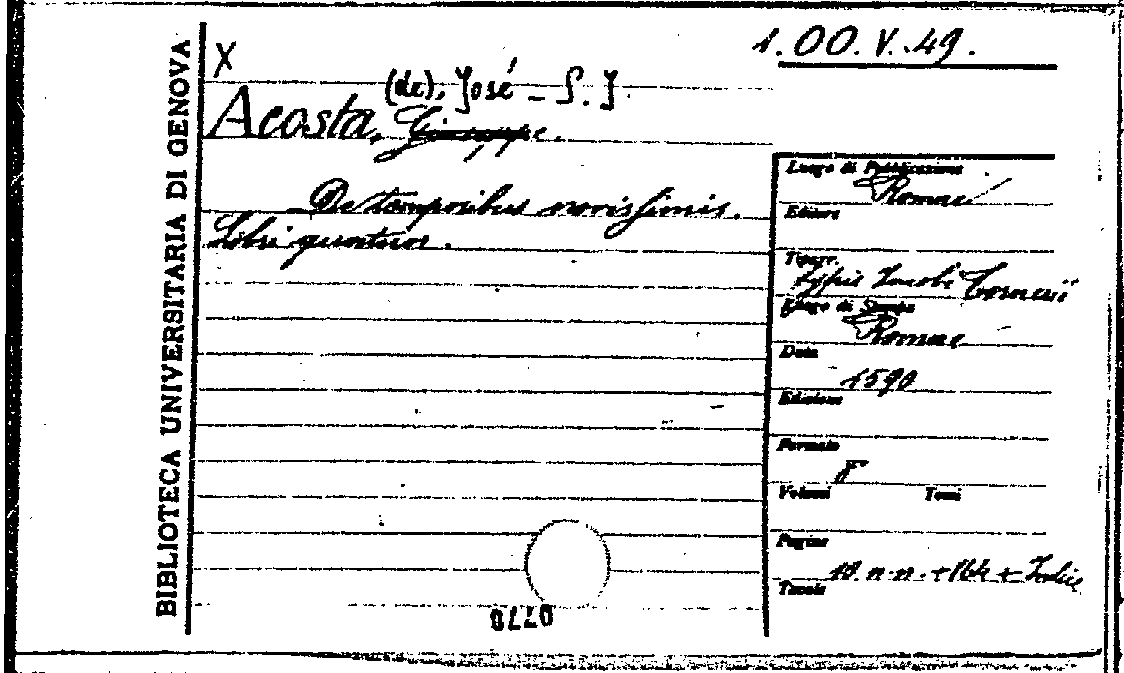 BIBLIOTECA UNIVERSITARIA DI GENOVA
X
1.OO.V.49.
(de), José - S.J.
Acosta, Giuseppe.
De temporibus novissimis.
Libri quatuor.
Luogo di Pubblicazione
Romae
Editore
Tipogr.
typis Jacobi Tornerii
Luogo di Stampa
Romae
Data
1590
Edizione
Formato
8
Volumi Tomi
Pagine
10 n.n. + 164 + Indice
Tavole
0770